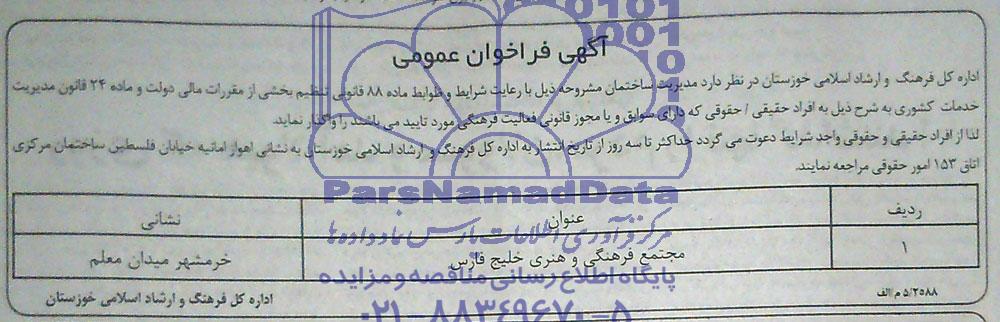 آگهی فراخوان عمومی
اداره کل فرهنگ و ارشاد اسلامی خوزستان در نظر دارد مدیریت ساختمان مشروحه ذیل با رعایت شرایط و ضوابط ماده ۸۸ قانونی تنظیم بخشی از مقررات مالی دولت و ماده ۲۴ قانون مدیریت
خدمات کشوری به شرح ذیل به افراد حقیقی / حقوقی که دارای سوابق و یا مجوز قانونی فعالیت فرهنگی مورد تایید می باشند را واگذار نماید.
لذا از افراد حقیقی و حقوقی واجد شرایط دعوت می گردد حداکثر تا سه روز از تاریخ انتشار به اداره کل فرهنگ و ارشاد اسلامی خوزستان به نشانی اهواز امانیه خیابان فلسطین ساختمان مرکزی
اتاق ۱۵۳ امور حقوقی مراجعه نمایند.
ParsNamadData
ردیف عنوان نشانی
مرکز فرآوری اطلاعات پارس نماد داده ها
۱ مجتمع فرهنگی و هنری خلیج فارس خرمشهر میدان معلم
پایگاه اطلاع رسانی مناقصه و مزایده
۵/۲۵۸۸ م/الف اداره کل فرهنگ و ارشاد اسلامی خوزستان
۰۲۱-۸۸۳۴۹۶۷۰-۵